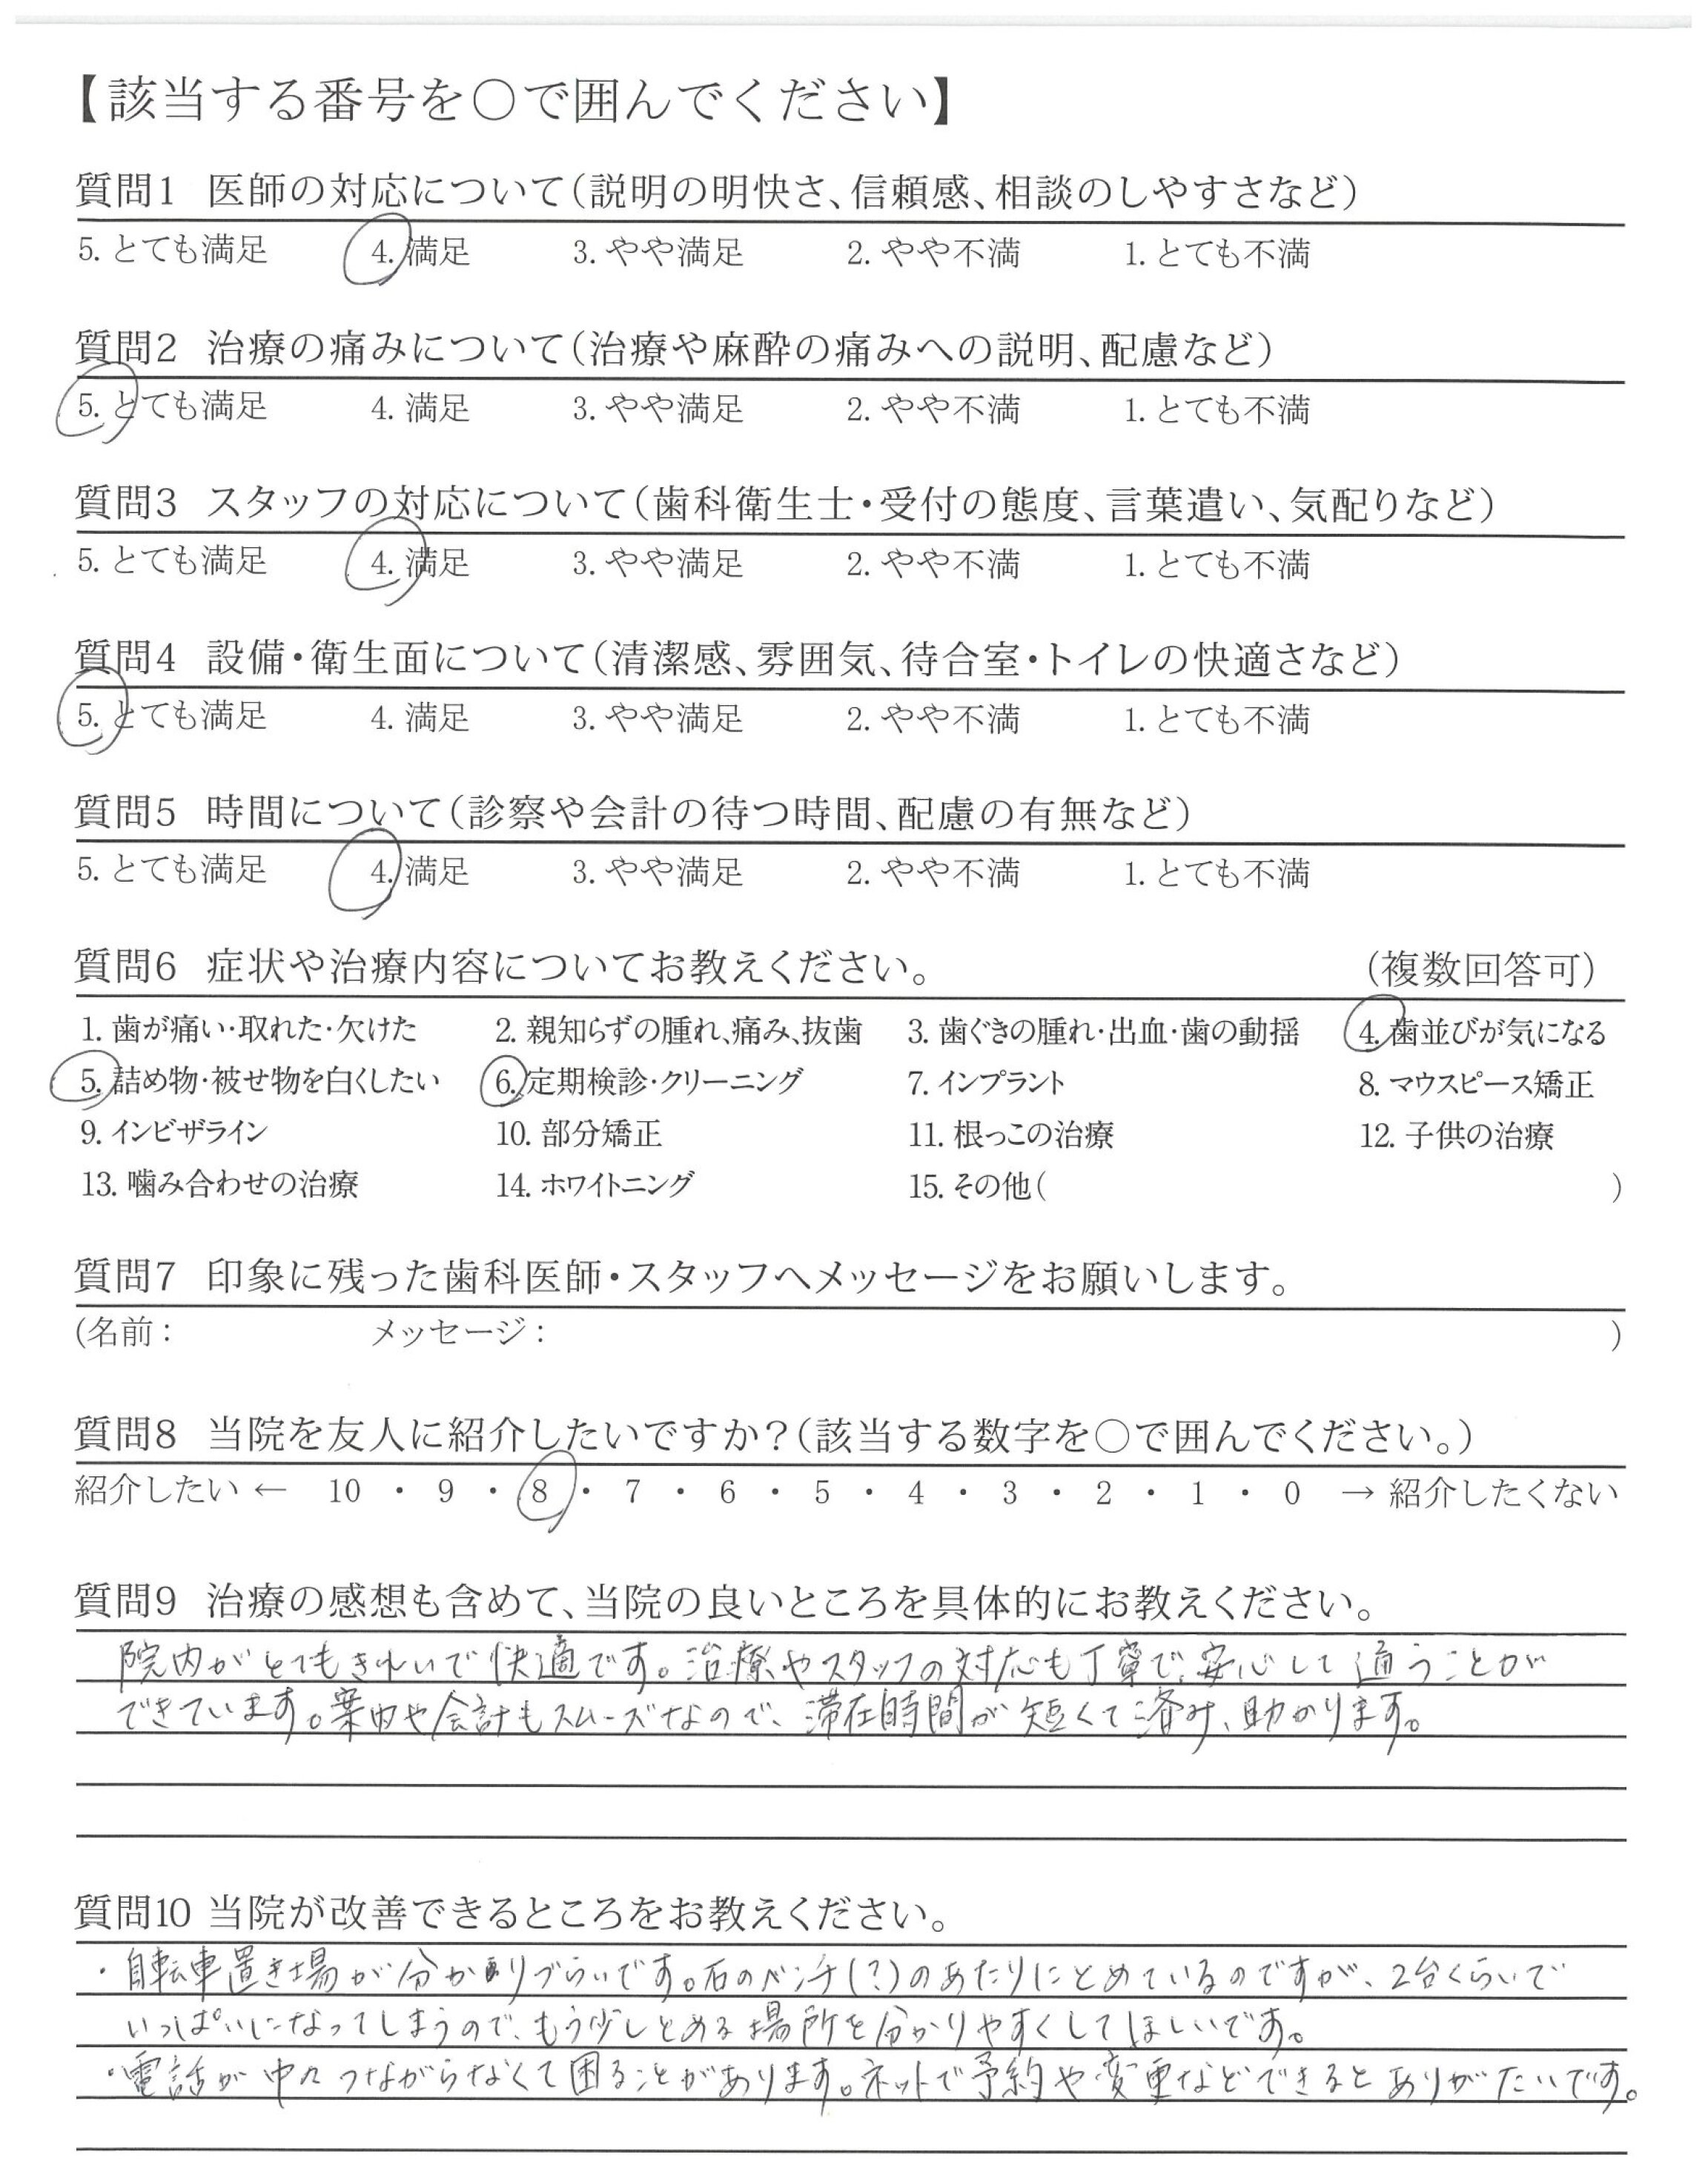 【該当する番号を○で囲んでください】
質問1 医師の対応について(説明の明快さ、信頼感、相談のしやすさなど)
5. とても満足 4. 満足 3. やや満足 2. やや不満 1. とても不満
質問2 治療の痛みについて(治療や麻酔の痛みへの説明、配慮など)
5. とても満足 4. 満足 3. やや満足 2. やや不満 1. とても不満
質問3 スタッフの対応について(歯科衛生士・受付の態度、言葉遣い、気配りなど)
5. とても満足 4. 満足 3. やや満足 2. やや不満 1. とても不満
質問4 設備・衛生面について(清潔感、雰囲気、待合室・トイレの快適さなど)
5. とても満足 4. 満足 3. やや満足 2. やや不満 1. とても不満
質問5 時間について(診察や会計の待つ時間、配慮の有無など)
5. とても満足 4. 満足 3. やや満足 2. やや不満 1. とても不満
質問6 症状や治療内容についてお教えください。 (複数回答可)
1. 歯が痛い・取れた・欠けた 2. 親知らずの腫れ、痛み、抜歯 3. 歯ぐきの腫れ・出血・歯の動揺 4. 歯並びが気になる
5. 詰め物・被せ物を白くしたい 6. 定期検診・クリーニング 7. インプラント 8. マウスピース矯正
9. インビザライン 10. 部分矯正 11. 根っこの治療 12. 子供の治療
13. 噛み合わせの治療 14. ホワイトニング 15. その他( )
質問7 印象に残った歯科医師・スタッフへメッセージをお願いします。
(名前: メッセージ: )
質問8 当院を友人に紹介したいですか?(該当する数字を○で囲んでください。)
紹介したい ← 10 ・ 9 ・ 8 ・ 7 ・ 6 ・ 5 ・ 4 ・ 3 ・ 2 ・ 1 ・ 0 → 紹介したくない
質問9 治療の感想も含めて、当院の良いところを具体的にお教えください。
院内がとてもきれいで快適です。治療やスタッフの対応も丁寧で、安心して通うことが
できています。案内や会計もスムーズなので、滞在時間が短くて済み、助かります。
質問10 当院が改善できるところをお教えください。
・自転車置き場が分かりづらいです。石のベンチ(?)のあたりにとめているのですが、2台くらいで
いっぱいになってしまうので、もう少しとめる場所を分かりやすくしてほしいです。
・電話が中々つながらなくて困ることがあります。ネットで予約や変更などできるとありがたいです。